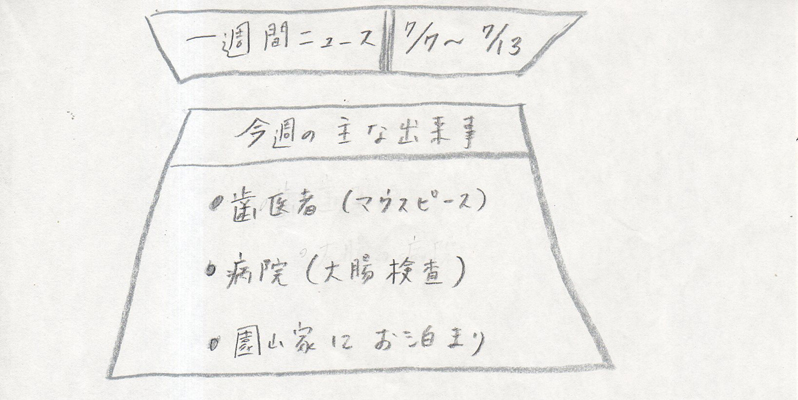 一週間ニュース 7/7〜7/13
今週の主な出来事
●歯医者(マウスピース)
●病院(大腸検査)
●園山家にお泊まり